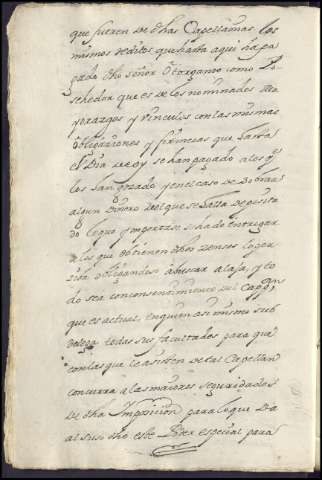 que fueren de dhas Capellanias los
mismos reditos que hasta aqui ha pa
gado dho señor Otorgante como P
sehedor que es de los nominados Ma
yorazgos y vinculos con las mismas
obligaciones y firmezas que hasta
el Dia de oy se han pagado a los q.
los han gozado y en el caso de Sobrar
algun Dinero del que se halla Deposita
do lo que ymportare se ha de entregar
a los que obtienen dhos zensos
obligandose a y to
do sea con consentimiento del Cappn
que es actual, en quien asi mismo sub
delega todas sus facultades para que
con las que le asisten de tal Capellan
concurra a las maiores seguridades
de dha Imposicion para lo que Da
al suso dho este Poder especial para